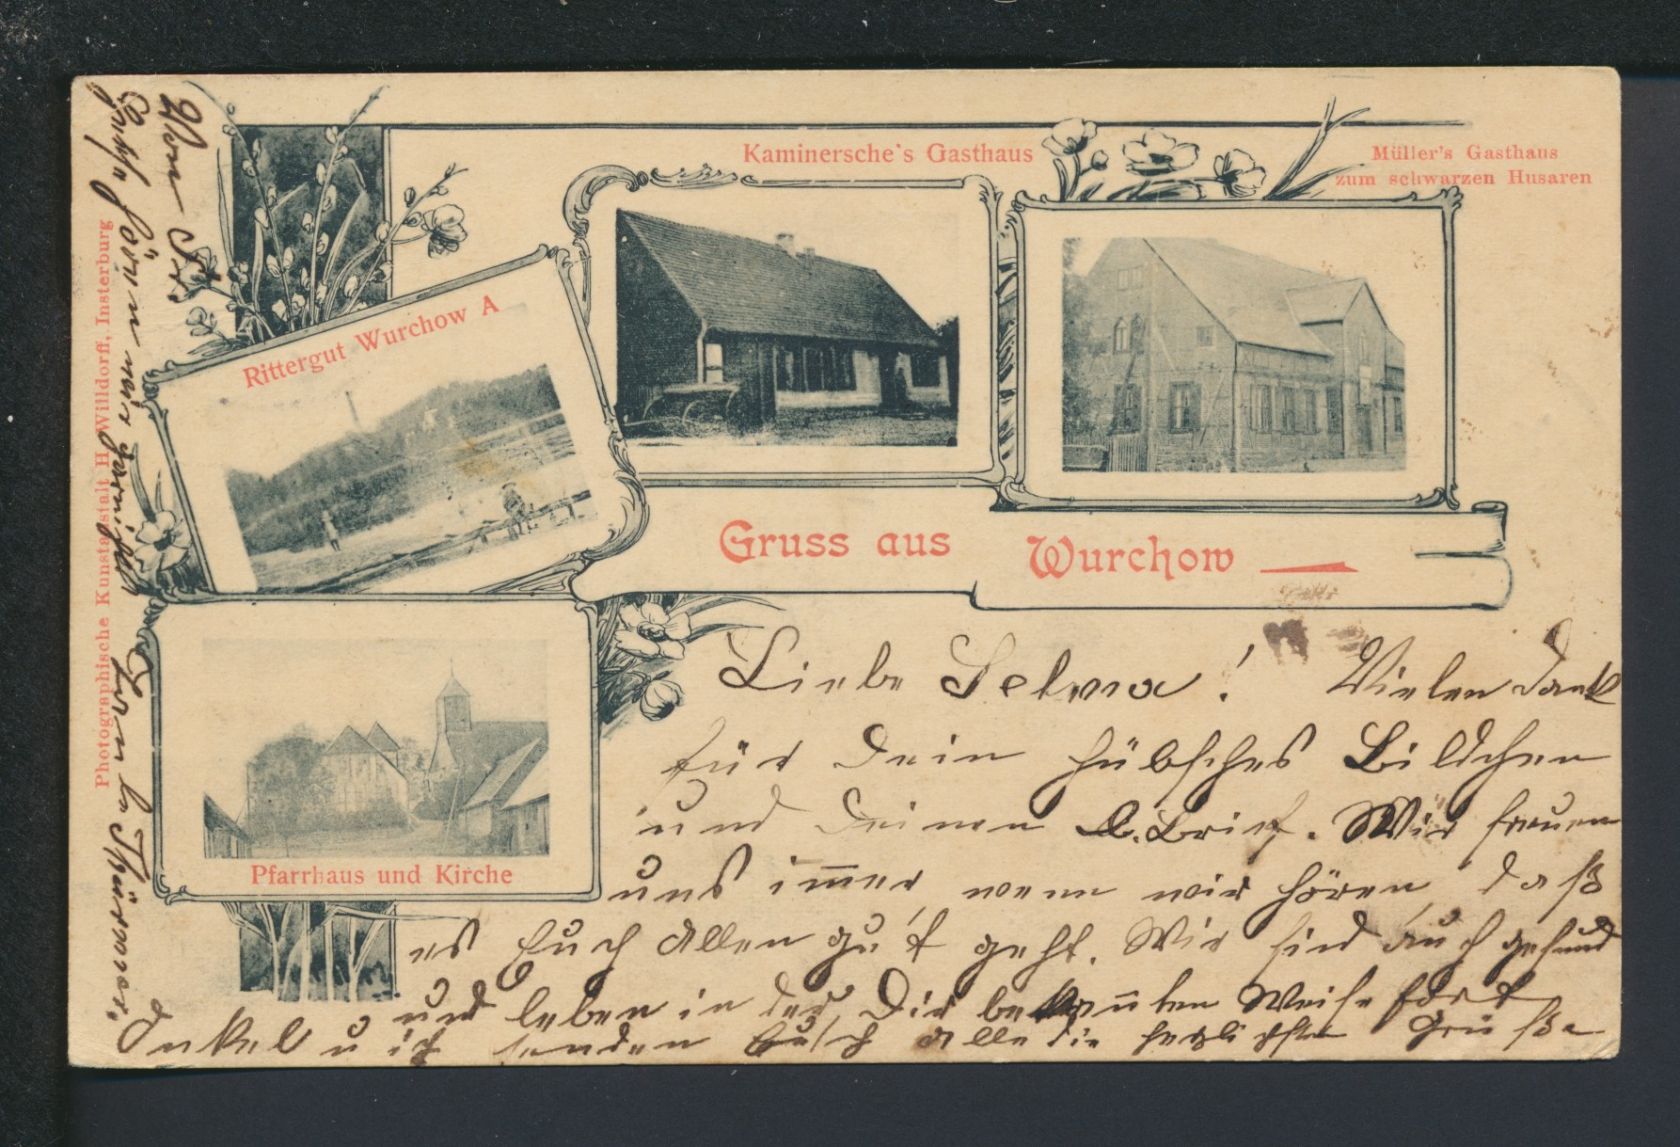 Kaminersche's Gasthaus
Müller's Gasthaus
zum schwarzen Husaren
Rittergut Wurchow A
Gruss aus Wurchow
Pfarrhaus und Kirche
Photographische Kunstanstalt H. Willdorff, Insterburg
Liebe Selma! Vielen Dank
für Dein hübsches Bildchen
und Deinen l. Brief. Wir freuen
uns immer, wenn wir hören, daß
es Euch Allen gut geht. Wir sind auch gesund
und leben in der Dir bekannten Weise fort
Onkel u ich senden Euch alle die herzlichsten Grüße
Von
hören wir
Thürmer